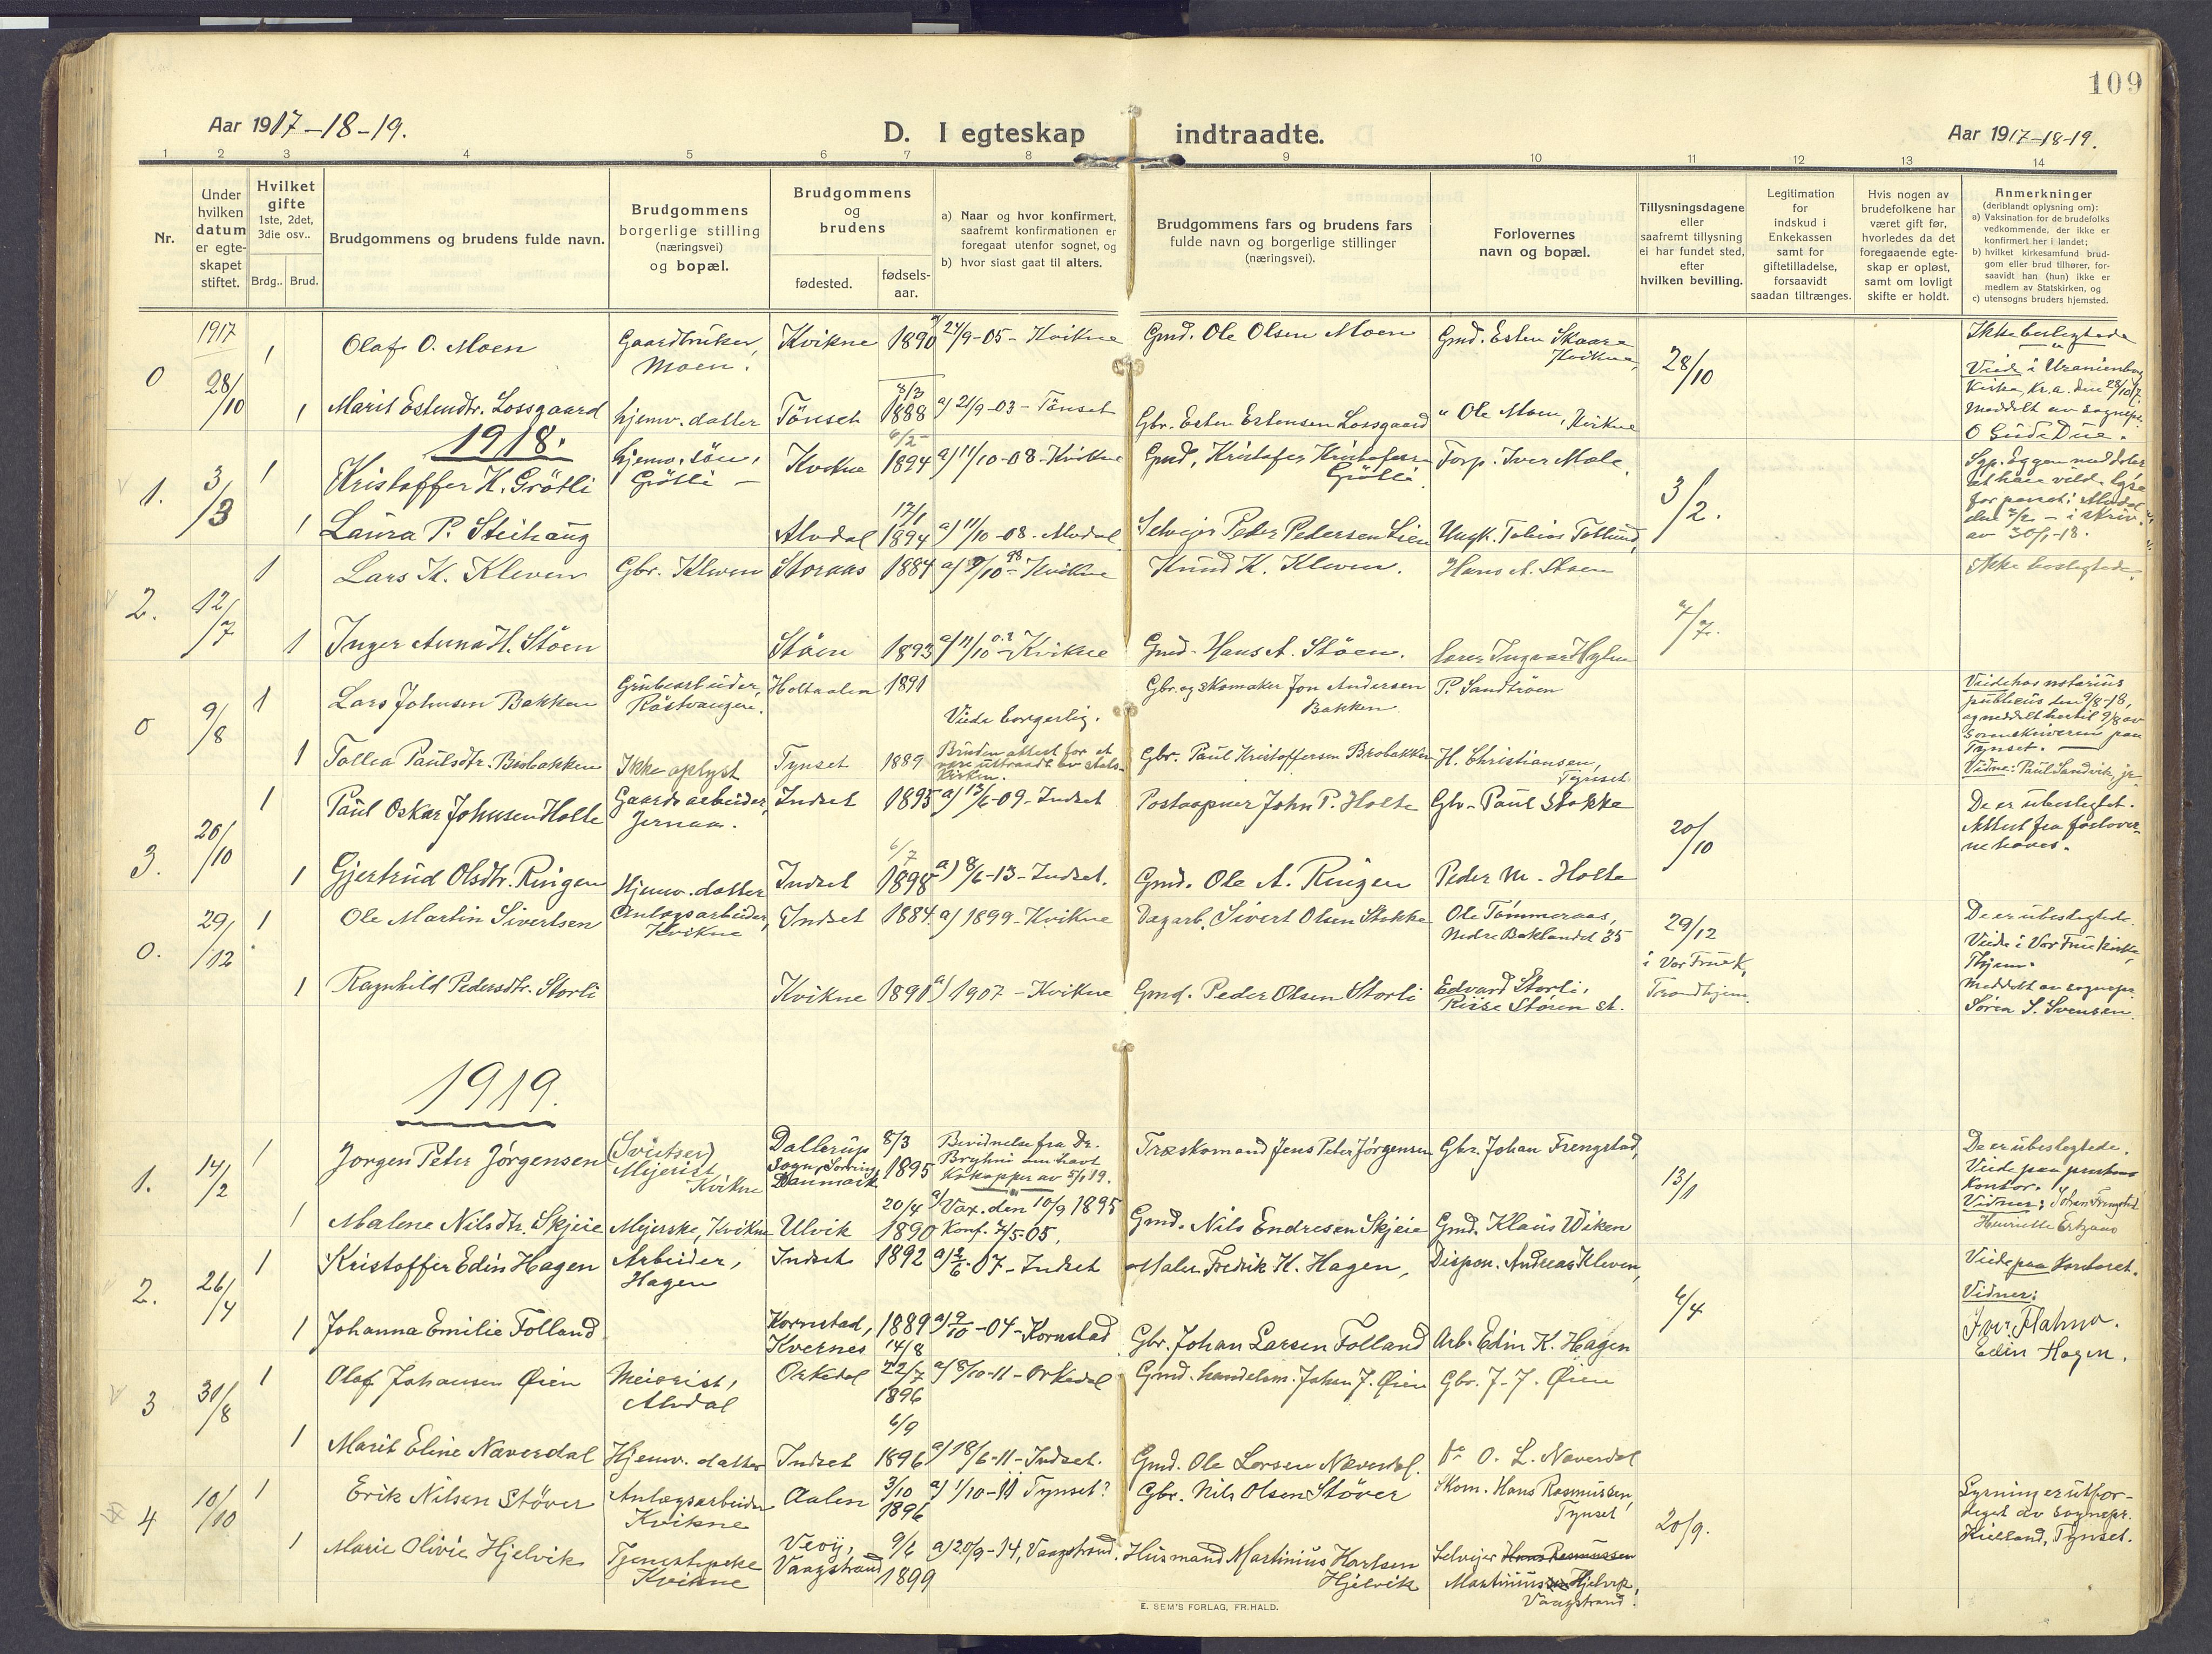 109
Aar 1917-18-19.
D. I egteskap indtraadte.
Aar 1917-18-19.
1 2 3 4 5 6 7 8 9 10 11 12 13 14
Nr.
Under hvilken datum er egte-skapet stiftet.
Hvilket gifte 1ste, 2det, 3die osv..
Brdg.. Brud.
Brudgommens og brudens fulde navn.
Brudgommens borgerlige stilling (næringsvei) og bopæl.
Brudgommens og brudens
fødested. fødsels-aar.
a) Naar og hvor konfirmert, saafremt konfirmationen er foregaat utenfor sognet, og
b) hvor sidst gaat til alters.
Brudgommens fars og brudens fars fulde navn og borgerlige stillinger (næringsvei).
Forlovernes navn og bopæl.
Tillysningsdagene eller saafremt tillysning ei har fundet sted, efter hvilken bevilling.
Legitimation for indskud i Enkekassen samt for giftetilladelse, forsaavidt saadan tiltrænges.
Hvis nogen av brudefolkene har været gift før, hvorledes da det foregaaende egte-skap er opløst, samt om lovligt skifte er holdt.
Anmerkninger (deriblandt oplysning om):
a) Vaksination for de brudefolks vedkommende, der ikke er konfirmert her i landet;
b) hvilket kirkesamfund brud-gom eller brud tilhører, for-saavidt han (hun) ikke er medlem av Statskirken, og
c) utensogns bruders hjemsted.
1917
0 28/10 1 Olaf O. Moen Gaardbruker, Moen. Kvikne 1890 a) 24/9-05- Kvikne Gmd. Ole Olsen Moen Gmd. Esten Skaare Kvikne, 28/10
Ikke beslegtede
Viede i Uranienborg Kirke, Kr.a. den 28/10 17.
Meddelt av sognepr.
O Gude Due.
1 Marit Estendtr. Lossgaard hjemv. datter Tönset 8/3 1888 a) 21/9-03- Tönset Gbr. Esten Estensen Lossgaard " Ole Moen, Kvikne
1918.
1. 3/3 1 Kristoffer K. Grötli hjemv. sön, Grötli - Kvikne 6/2 1894 a) 11/10-08-Kvikne Gmd. Kristofer Kristofersen Grötli Forp. Iver Mole. 3/2.
1 Laura P. Steihaug Alvdal 12/1 1894 a) 11/10-08. Alvdal Selveier Peder Pedersen Lien Ungk. Tobias Tollund,
av 30/1-18.
2. 12/7 1 Lars K. Kleven Gbr. Kleven Storaas 1884 a) 9/10-98- Kvikne Knud K. Kleven. Hans A. Stöen 7/7. Ikke beslegtede.
1 Inger Anna H. Stöen Stöen 1893 a) Kvikne Gmd. Hans A. Stöen. Lærer Ingvar Hylen
0 9/8 1 Lars Johnsen Bakken Grubearbeider, Röstvangen. Holtaalen 1891 Viede borgerlig. Gbr. og skomaker Jon Andersen Bakken P. Sandtröen
Viede hos notarius publicus den 9/8-18,
og meddelt hertil 9/8 av
Sorenskriveren paa Tynset.
Vidne: Paul Sandvik, jr.
1 Tollea Paulsdtr. Brobakken Ikke oplyst Tynset 1889 Bruden attest for at være utraadt av stats-kirken. Gbr. Paul Kristoffersen Brobakken H. Christiansen, Tynset
3. 20/10 1 Paul Oskar Johnsen Holte Gaardsarbeider, Jernaa. Indset 1895 a) 13/6-09-Indset Postaapner John P. Holte Gbr. Paul Stokke 20/10
De er ubeslegtet.
Attest fra forlover-ne haves.
1 Gjertrud Olsdtr. Ringen Hjemv. datter Indset 6/7 1898 a) 8/6-13-Indset. Gmd. Ole A. Ringen Peder M. Holte
0. 29/12 1 Ole Martin Sivertsen Anlægsarbeider, Kvikne Indset 1884. a) 1899-Kvikne Dagarb. Sivert Olsen Stokke Ole Tömmeraas, Nedre Baklandet 35 29/12 i Vor Frue K. Trondhjem.
De er ubeslegtede.
Viede i Vor Frue Kirke, Thjem.
Meddelt av sognepr.
Sören S. Svensen.
1 Ragnhild Pedersdtr. Storli Kvikne 1891 a) 1907-Kvikne Gmd. Peder Olsen Storli Edvard Storli, Riise Stören st.
1919.
1. 14/2 1 Jorgen Peter Jörgensen (Sveitser) Mejerist, Kvikne Dallerup Sogn, Sorring, Danmark 8/3 1895 Bevidnelse fra Dr. Bryhni om havt Kokopper av 5/1 19. Træskomand Jens Peter Jörgensen Gbr. Johan Frengstad, 13/1
De er ubeslegtede.
Viede paa prestens kontor.
Vidner: Johan Frengstad
Henriette Ertzaas
1 Malene Nilsdtr. Skjeie Mejerske, Kvikne Ulvik 20/4 1890 a) Vax. den 10/9 1895 Konf. 7/5-05. Gmd. Nils Endresen Skjeie Gmd. Klaus Wiken
2. 26/4 1 Kristoffer Edin Hagen Arbeider, Hagen Indset 1892 a) 2/6-07-Indset Maler Fredrik K. Hagen, Dispon. Andreas Kleven, 6/4
Viede paa kontoret.
Vidner:
Iver Flahnor.
Edin Hagen.
1 Johanna Emilie Folland Kornstad, Kvernes 1889 14/8 a) 9/10-04-Kornstad Gbr. Johan Larsen Folland Arb. Edin K. Hagen
3 31/8 1 Olaf Johansen Øien Meierist, Alvdal Orkedal 22/7 1896 a) 8/10-11-Orkedal Gmd. handelsm. Johan J. Øien Gbr. J. J. Øien
1 Marit Eline Næverdal Hjemv. datter Indset 6/9 1896 a) 18/6-11-Indset. Gmd. Ole Larsen Næverdal. Do O. L. Næverdal
4 10/10 1 Erik Nilsen Stöver Anlægsarbeider Kvikne Aalen 3/10 1896 a) 1/10-11 Tynset? Gbr. Nils Olsen Stöver Skom. Hans Rasmussen, Tynset 20/9.
Lysning er utfor-diget av sognepr.
Kielland, Tynset.
1 Marie Olivie Hjelvik Tjenestepike Kvikne Veöy, Vaagstrand 9/6 1899 a) 20/9-14, Vaagstrand. Husmand Martinius Karlsen Hjelvik Selveier Hans Rasmussen Martinius Hjelvik, Vaagstrand.
E. SEM'S FORLAG, FR.HALD.